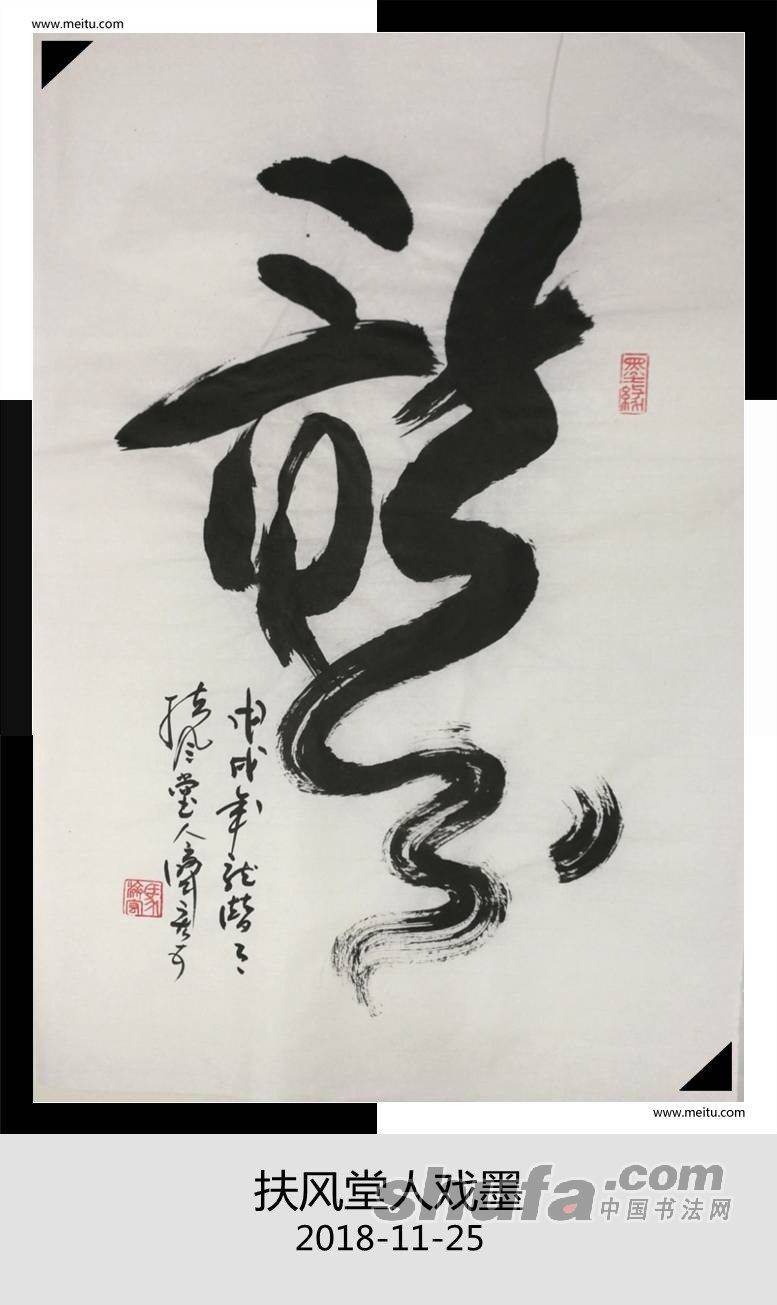 www.meitu.com
龍
墨缘
戊戌年
扶风堂人
www.meitu.com
扶风堂人戏墨
shufa.com
中国书法网
2018-11-25